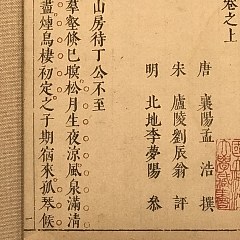 卷之上
唐 襄陽孟 浩 撰
宋 廬陵劉辰翁 評
明 北地李夢陽 參
山房待丁公不至
羣壑倏已暝松月生夜涼風泉滿清
盡煙鳥棲初定之子期宿來孤琴候